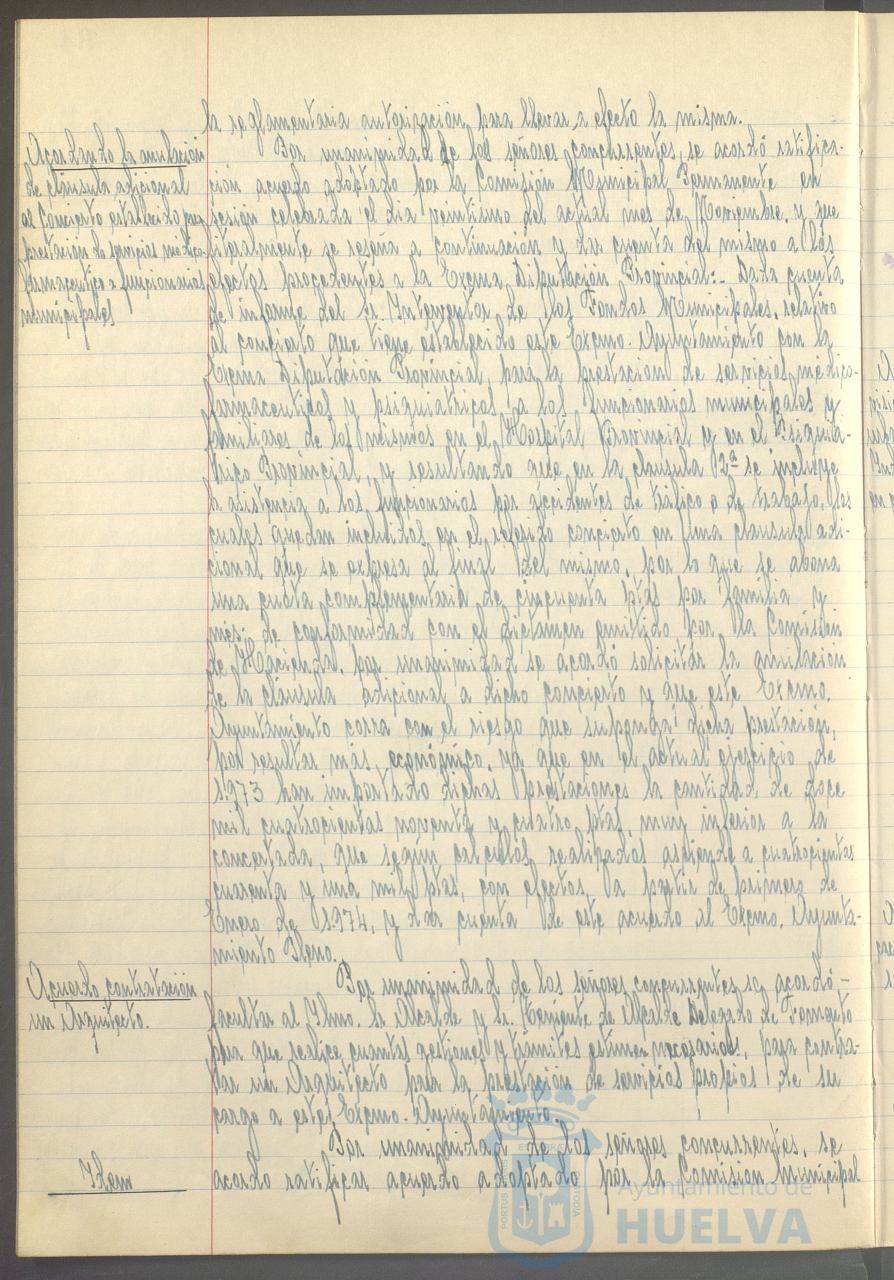 la reglamentaria autorización para llevar a efecto la misma.
Acordando la anulación
de cláusula adicional
al Concierto establecido para
prestación de servicios médico-
farmaceutico a funcionarios
municipales
Por unanimidad de los señores concurrentes, se acordó ratifica-
ción acuerdo adoptado por la Comisión Municipal Permanente en
sesión celebrada el dia veintiuno del actual mes de Noviembre y que
literalmente se reseña a continuación y dar cuenta del mismo a los
efectos procedentes a la Excma. Diputación Provincial:- Dada cuenta
de informe del Sr. Interventor de los Fondos Municipales, relativo
al concierto que tiene establecido este Excmo. Ayuntamiento con la
Excma Diputación Provincial, para la prestación de servicios médico-
farmaceuticos y psiquiatricos a los funcionarios municipales y
familiares de los mismos en el Hospital Provincial y en el Psiquiá-
trico Provincial, y resultando que en la clausula 2ª se incluye
la asistencia a los funcionarios por accidentes de tráfico o de trabajo, los
cuales quedan incluidos en el referido concierto en una clausula adi-
cional que se expresa al final del mismo, por lo que se abona
una cuota complementaria de cincuenta ptas por familia y
mes; de conformidad con el dictamen emitido por la Comisión
de Hacienda, por unanimidad se acordó solicitar la anulación
de la cláusula adicional a dicho concierto y que este Excmo.
Ayuntamiento corra con el riesgo que suponga dicha prestación,
por resultar más económico, ya que en el actual ejercicio de
1.973 han importado dichas prestaciones la cantidad de doce
mil cuatrocientas noventa y cuatro ptas, muy inferior a la
concertada, que según calculos realizados asciende a cuatrocientas
cuarenta y una mil ptas, con efectos a partir de primero de
Enero de 1.974, y dar cuenta de este acuerdo al Excmo. Ayunta-
miento Pleno.
Acuerdo contratación
un Arquitecto.
Por unanimidad de los señores concurrentes se acordó -
facultar al Ilmo. Sr Alcalde y Sr. Teniente de Alcalde Delegado de Fomento
para que realice cuantas gestiones y trámites estimen necesarios, para contra-
tar un Arquitecto para la prestación de servicios propios de su
cargo a este Excmo. Ayuntamiento.
Idem
Por unanimidad de los señores concurrentes, se
acordo ratificar acuerdo adoptado por la Comision Municipal
PORTUS
CUSTODIA
Ayuntamiento de
HUELVA